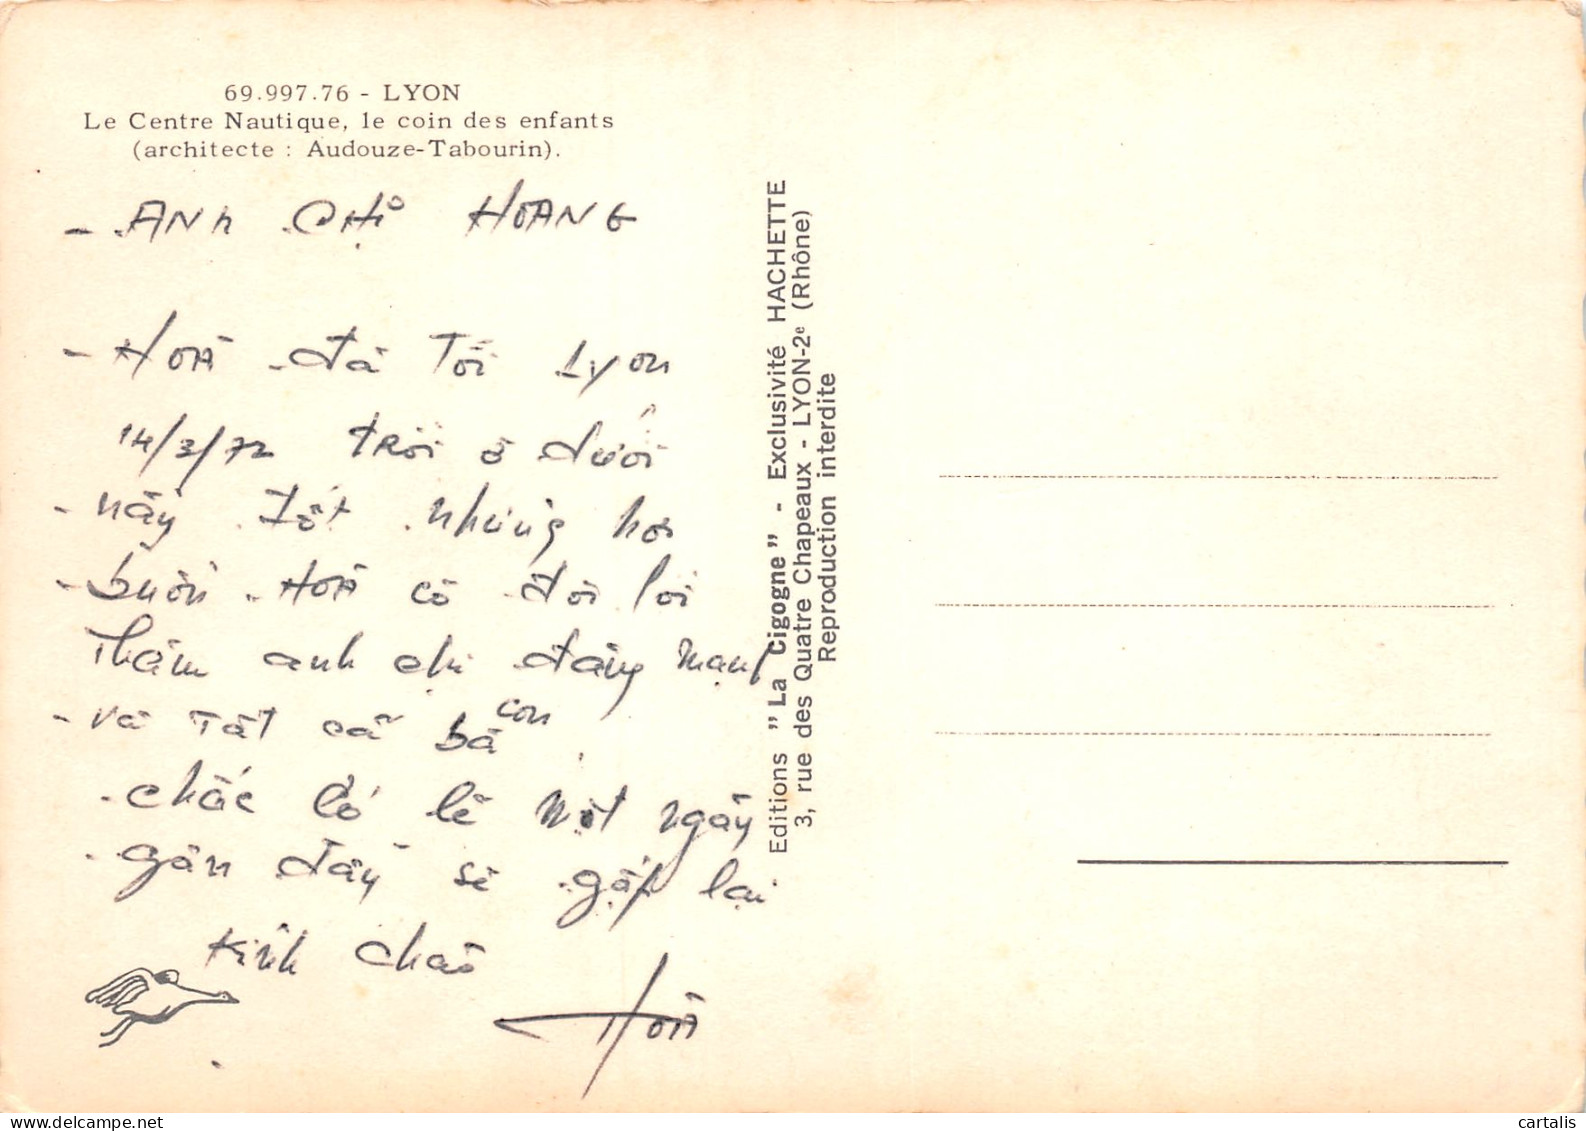 69.997.76 - LYON
Le Centre Nautique, le coin des enfants
(architecte : Audouze-Tabourin).
- ANH CHỊ HOANG
- HOÀ đã Tới Lyon
14/3/72 trời ở dưới
này tốt nhưng hơi
buồn HOÀ có đôi lời
Thăm anh chị đặng mạnh
và Tất cả bà con
chắc có lẽ một ngày
gần đây sẽ gặp lại
Kính chào
Hoà
Editions "La Cigogne" - Exclusivité HACHETTE
3, rue des Quatre Chapeaux - LYON-2e (Rhône)
Reproduction interdite
delcampe.net
cartalis